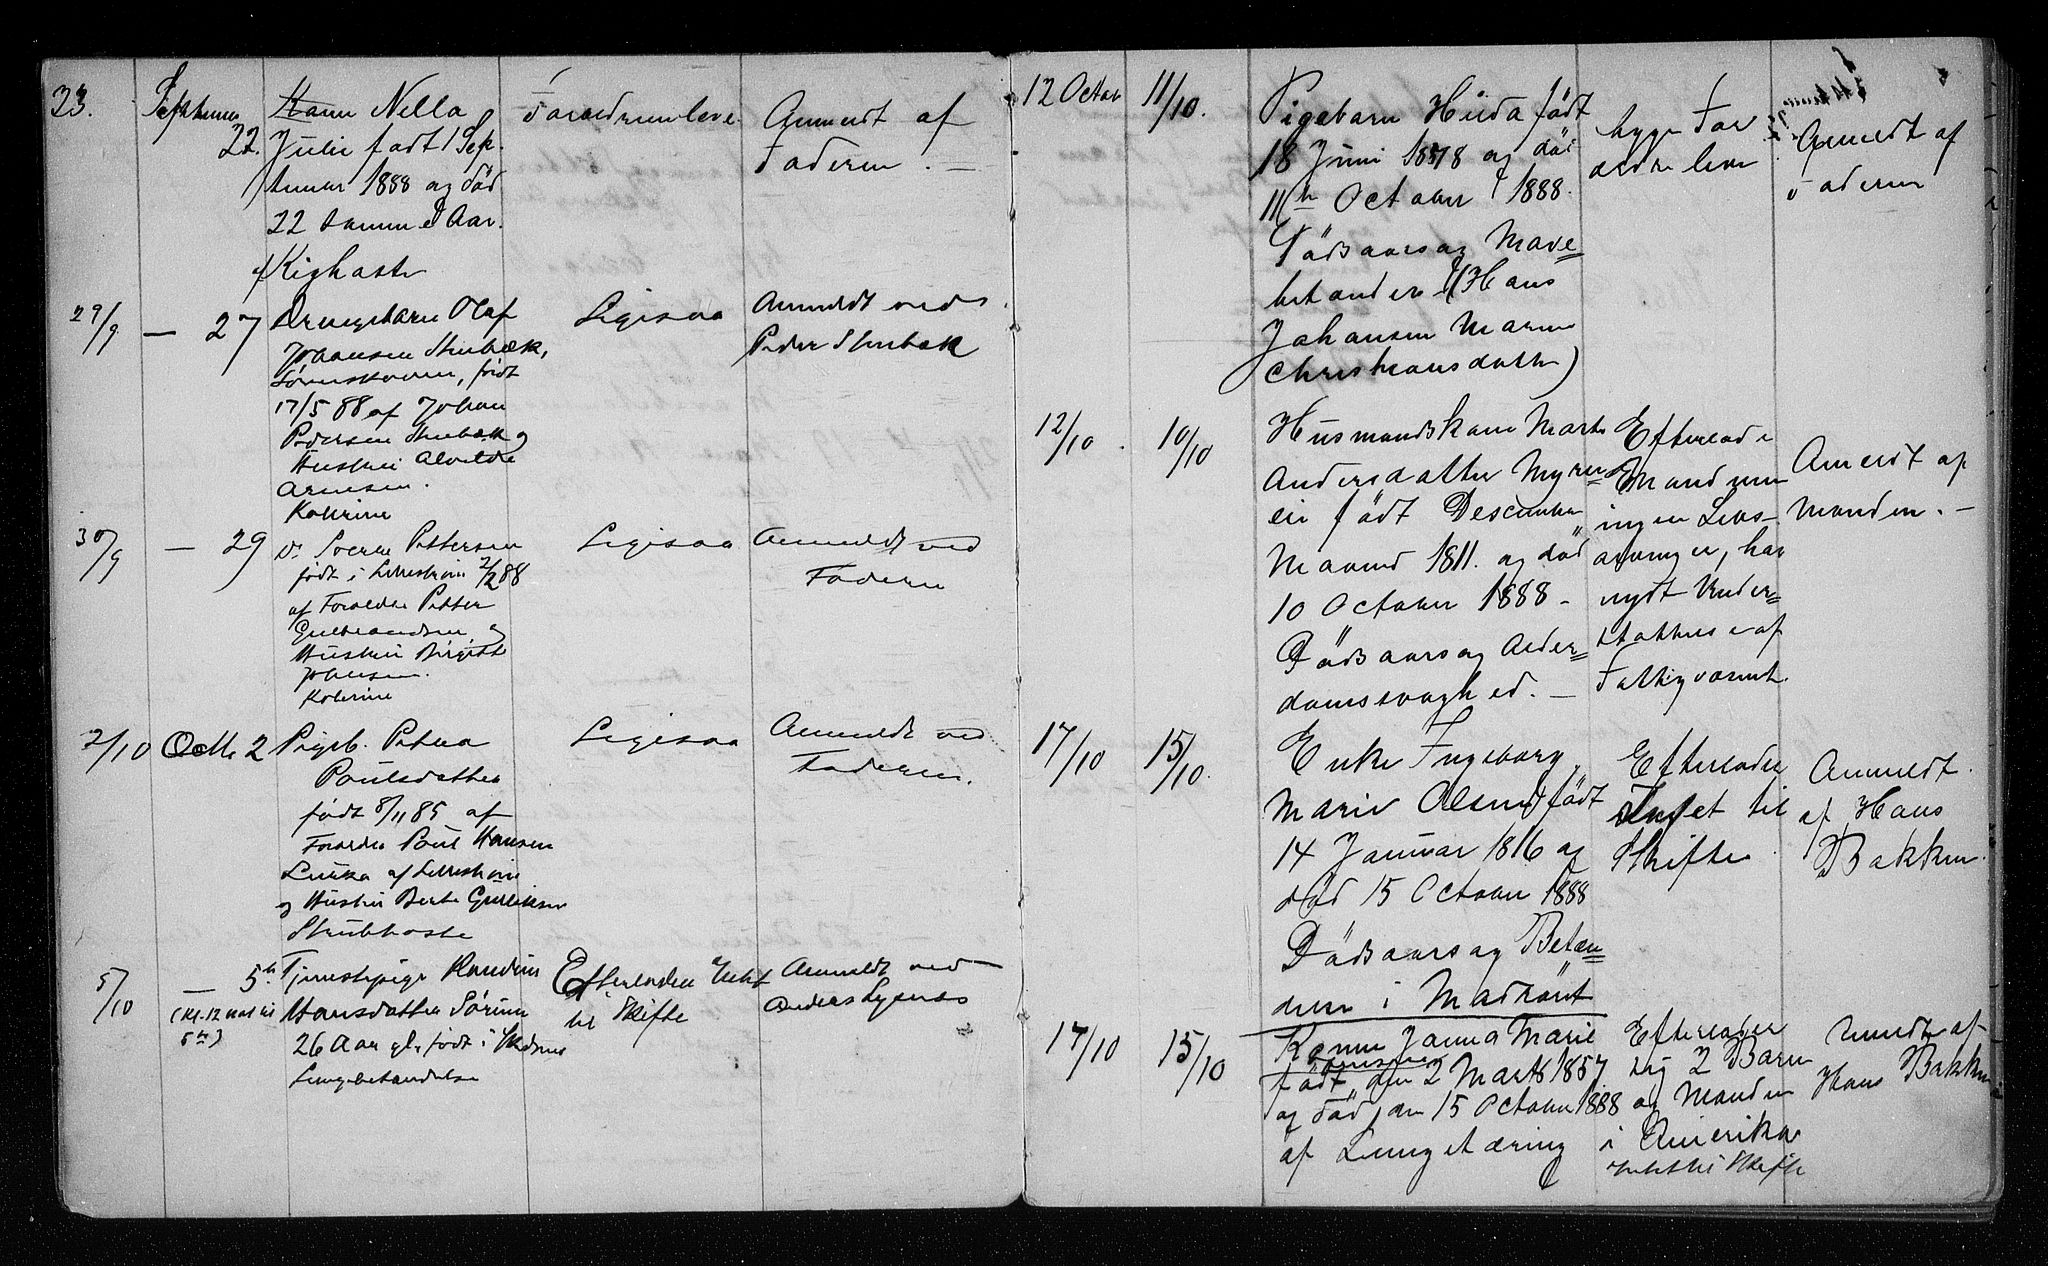 23.
Septemer
22.
Nella
Julie født 1 Sep-
temer 1888 og død
22 samme Aar.
af Kighoste
Foraeldrene lever
Anmeldt af
Faderen.
29/9 — 27
Drengebarn Olaf
Johansen Stenbæk,
født
17/5 88 af Johan
Pedersen Stenbæk og
Hustru Alvilde
Arnesen.
Kolerine
Ligesaa
Anmeldt ved
Peder Stenbæk
30/9 — 29
Do Sverre Pettersen
født i Lillestrøm 2/2 88
af Foræld Petter
Gulbrandsen og
Hustru Birgitte
Johnsen.
Kolerine
Ligesaa
Anmeldt ved
Faderen
2/10 Octb 2
Pigeb. Petra
Poulsdatter
født 8/11 85 af
Forældre Poul Hansen
af Lillestrøm
og Hustru Berte
Strubhoste
Ligesaa
Anmeldt ved
Faderen.
5/10 — 5te
(Kl. 12 nat til
5te)
Tjenestepige Randine
Hansdatter Sørum
26 Aar gl. født i
Lungebetændelse
Efterlader Intet
til Skifte
Anmeldt ved
Anders
12 Octob
11/10.
Pigebarn Hilda født
18 Juni 1878 og død
11te October 1888.
Dødsaarsag Mave=
betændelse (Hans
Johansen Maren
Christiansdatter)
begge For
ældre lever
Anmeldt af
Faderen
12/10. 10/10
Husmandskone Marte
Andersdatter Myren=
eie født Descember
Maaned 1811. og død
10 October 1888 –
Dødsaarsag Alder=
domssvaghed. —
Efterlader
Manden men
ingen Livs-
arvinger, har
nydt Under=
støttelse af
Fattigvæsnet.
Anmeldt af
Manden. —
17/10 15/10.
Enke Ingeborg
Marie Olsen født
14 Januar 1816 og
død 15 October 1888
Dødsaarsag Betæn=
delse i Madrønt
Efterlader
Intet til
Skifte
Anmeldt
af Hans
Bakken.
17/10 15/10
Kone Janna Marie
født den 2 Marts 1857
og død den 15 October 1888
af Lungetæring
Efterlader
sig 2 Børn
og Manden
i Amerika
Intet til Skifte
Anmeldt af
Hans Bakken